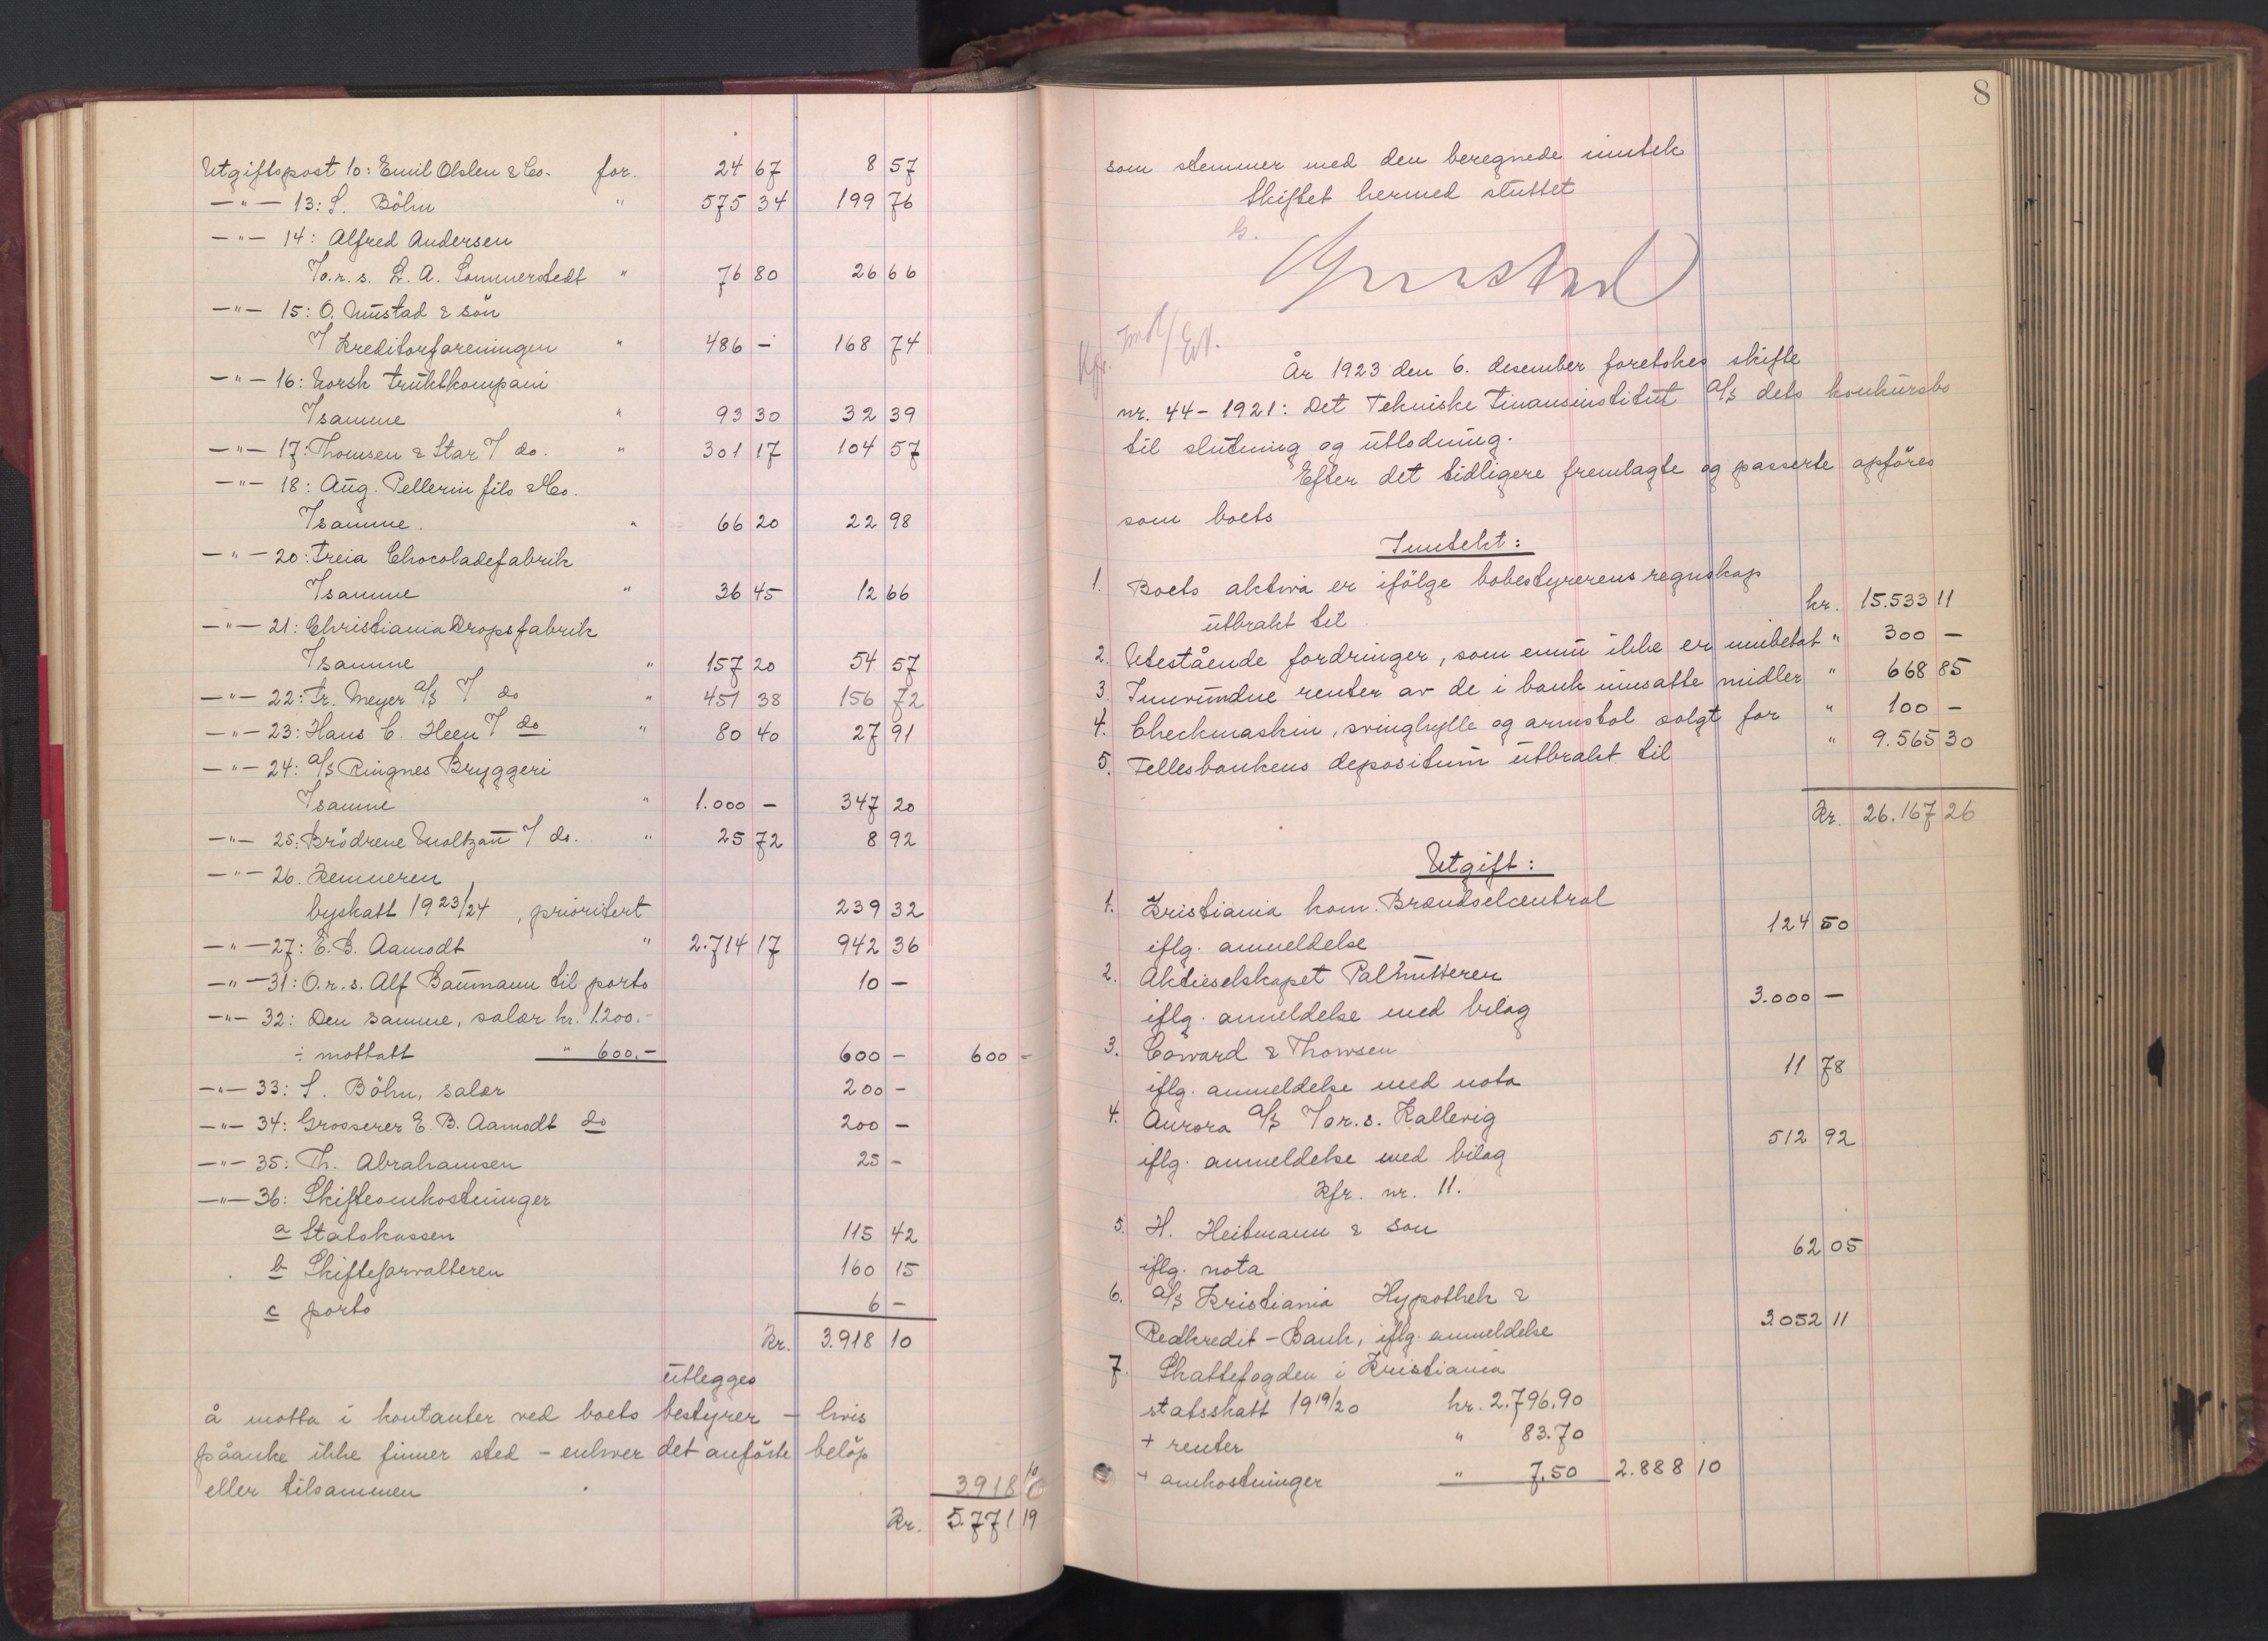 Utgiftspost 10: Emil Olslen & Co. for. 24 67 8 57
—"— 13: S. Böhn " 575 34 199 76
—"— 14: Alfred Andersen
V/o.r.s. L. A. Sommerstedt " 76 80 26 66
—"— 15: O. Mustad & sön
V/ Kreditorforeningen " 486 — 168 74
—"— 16: Norsk Fruktkompani
V/samme " 93 30 32 39
—"— 17: Thomsen & Star V/ do. " 301 17 104 57
—"— 18: Aug. Pellerin fils & Co.
V/samme. " 66 20 22 98
—"— 20: Freia Chocoladefabrik
V/samme " 36 45 12 66
—"— 21: Christiania Dropsfabrik
V/samme " 157 20 54 57
—"— 22: Fr. Meyer A/S V/ do " 451 38 156 72
—"— 23: Hans C. Heen V/ do " 80 40 27 91
—"— 24: A/S Ringnes Bryggeri
V/samme " 1.000 — 347 20
—"— 25: Brödrene Moltzau V/ do. " 25 72 8 92
—"— 26. Kemneren
byskatt 1923/24, prioritert 239 32
—"— 27: E. B. Aamodt " 2.714 17 942 36
—"— 31: O.r.s. Alf Baumann til porto 10 —
—"— 32: Den samme, salær kr. 1.200.-
÷ mottatt " 600.— 600 — 600 —
—"— 33: S. Böhn, salær 200 —
—"— 34: Grosserer E. B. Aamodt do 200 —
—"— 35: Th. Abrahamsen 25 —
—"— 36: Skifteomkostninger
a Statskassen 115 42
b Skifteforvalteren 160 15
c porto 6 —
Kr. 3.918 10
utlegges
å motta i kontanter ved boets bestyrer — hvis
påanke ikke finner sted — enhver det anförte belöp
eller tilsammen 3.918 10
Kr. 5.771 19
8
som stemmer med den beregnede inntek
Skiftet hermed sluttet
År 1923 den 6. desember foretokes skifte
nr. 44 - 1921: Det Tekniske Finansinstitut A/S dets konkursbo
til slutning og utlodning.
Efter det tidligere fremlagte og passerte opföres
som boets
Inntekt:
1. Boets aktiva er ifölge bobestyrerens regnskap
utbrakt til kr. 15.533 11
2. Utestående fordringer, som ennu ikke er innbetalt " 300 —
3. Innvundne renter av de i bank innsatte midler " 668 85
4. Checkmaskin, svinghylle og armstol solgt for " 100 —
5. Fellesbankens depositum utbrakt til " 9.565 30
Kr. 26.167 26
Utgift:
1. Kristiania kom. Brændselcentral
iflg. anmeldelse 124 50
2. Aktieselskapet Palmutteren
iflg. anmeldelse med bilag 3.000 —
3. Coward & Thowsen
iflg. anmeldelse med nota 11 78
4. Aurora A/S V/or.s. Kallevig
iflg. anmeldelse med bilag 512 92
Kfr. nr. 11.
5. H. Heitmann & Son
iflg. nota 62 05
6. A/S Kristiania Hypothek &
Realkredit-Bank, iflg. anmeldelse 3052 11
7. Skattefogden i Kristiania
statsskatt 1919/20 kr. 2.796,90
+ renter " 83.70
+ omkostninger " 7.50 2.888 10